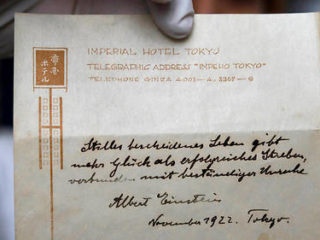 帝帝
ホテル
IMPERIAL HOTEL TOKYO
TELEGRAPHIC ADDRESS "IMPEHO TOKYO"
TELEPHONE GINZA
Stilles bescheidenes Leben gibt
mehr Glück als erfolgreiches Streben,
verbunden mit beständiger Unruhe
Albert Einstein
November 1922. Tokyo.